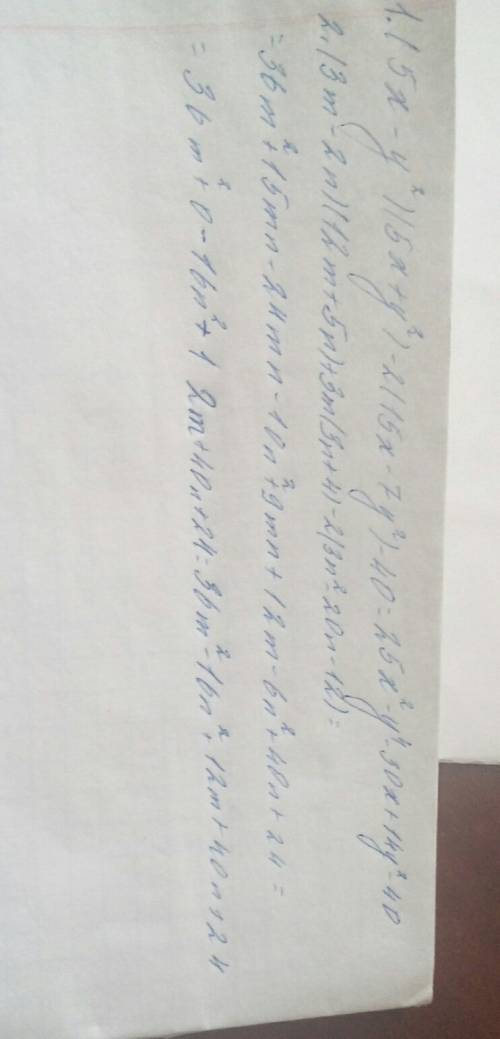 1. (5x - y²)(5x + y²) - 2(15x - 7y²) - 40 = 25x² - y⁴ - 30x + 14y² - 40
2. (3m - 2n)(12m + 5n) + 3m(3n + 4) - 2(3n² - 20n - 12) =
= 36m² + 15mn - 24mn - 10n² + 9mn + 12m - 6n² + 40n + 24 =
= 36m² + 0 - 16n² + 12m + 40n + 24 = 36m² - 16n² + 12m + 40n + 24